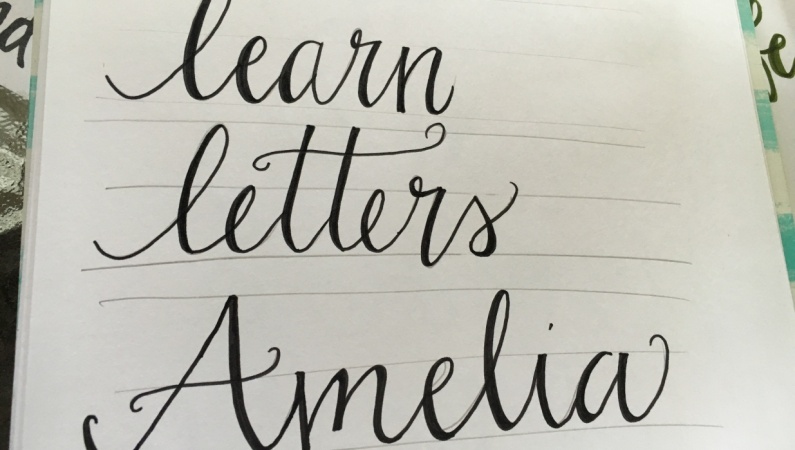 learn
letters
Amelia